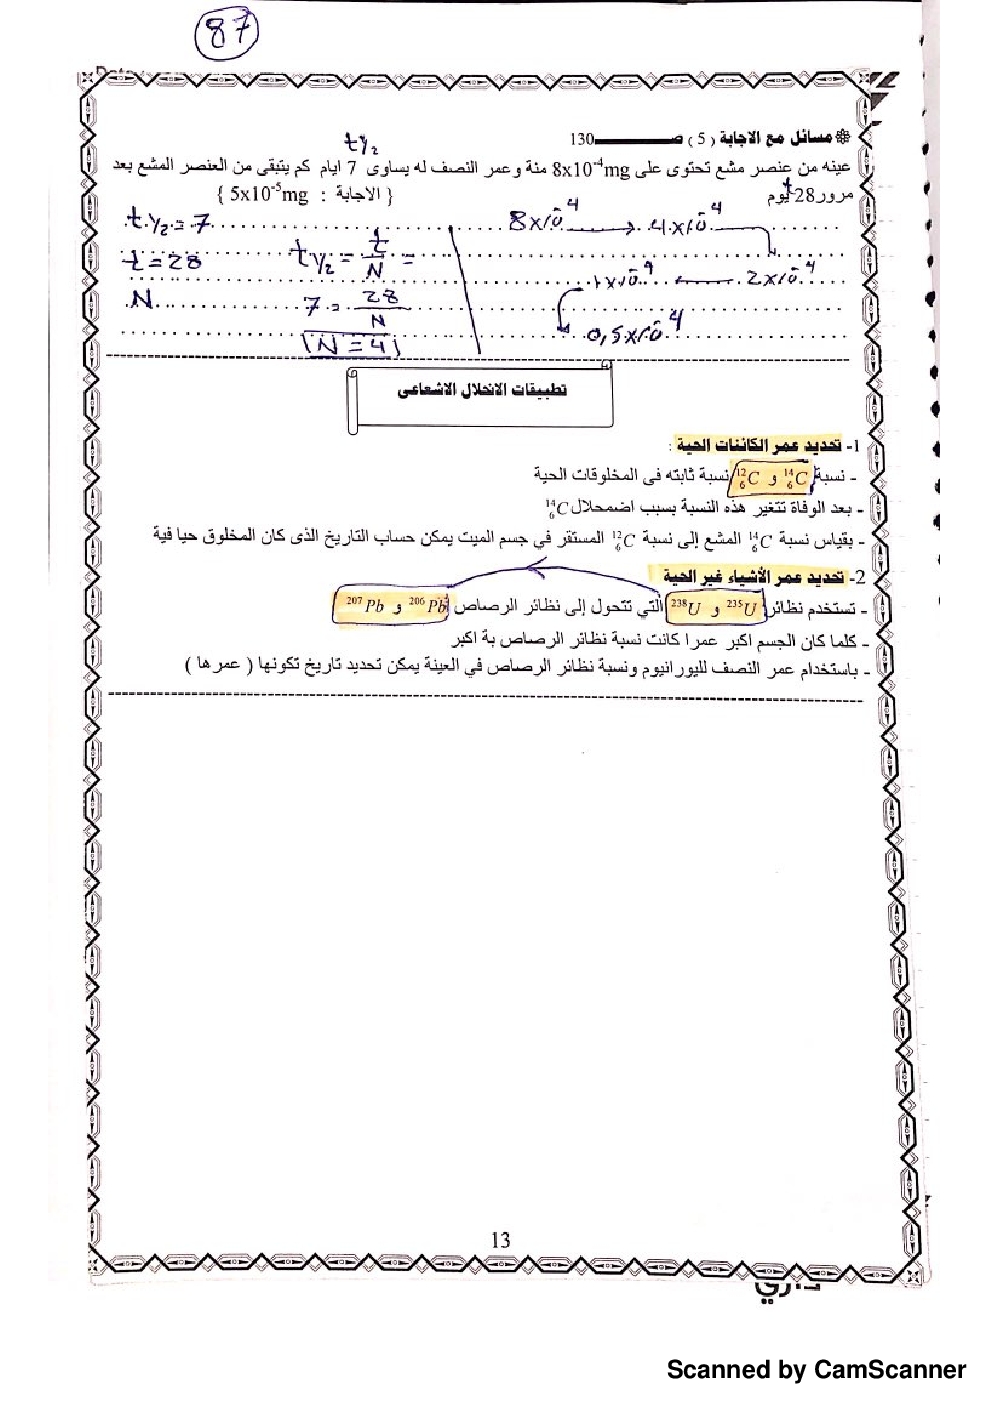 87
❋ مسائل مع الاجابة ( 5 ) صـــــــــ130
t½
عينه من عنصر مشع تحتوى على 8x10⁻⁴mg منة وعمر النصف له يساوى 7 ايام كم يتبقى من العنصر المشع بعد
مرور28 يوم { الاجابة : 5x10⁻⁵mg }
t
t½ = 7
8x10⁻⁴ → 4x10⁻⁴
t = 28
t½ = t/N =
1x10⁻⁴ ← 2x10⁻⁴
N
7 = 28/N
0,5x10⁻⁴
N = 4
تطبيقات الانحلال الاشعاعى
1- تحديد عمر الكائنات الحية :
- نسبة ¹⁴₆C و ¹²₆C نسبة ثابته فى المخلوقات الحية
- بعد الوفاة تتغير هذه النسبة بسبب اضمحلال ¹⁴₆C
- بقياس نسبة ¹⁴₆C المشع إلى نسبة ¹²₆C المستقر في جسم الميت يمكن حساب التاريخ الذى كان المخلوق حيا فية
2- تحديد عمر الأشياء غير الحية
- تستخدم نظائر ²³⁵U و ²³⁸U التي تتحول إلى نظائر الرصاص ²⁰⁶Pb و ²⁰⁷Pb
- كلما كان الجسم اكبر عمرا كانت نسبة نظائر الرصاص بة اكبر
- باستخدام عمر النصف لليورانيوم ونسبة نظائر الرصاص في العينة يمكن تحديد تاريخ تكونها ( عمرها )
13
Scanned by CamScanner